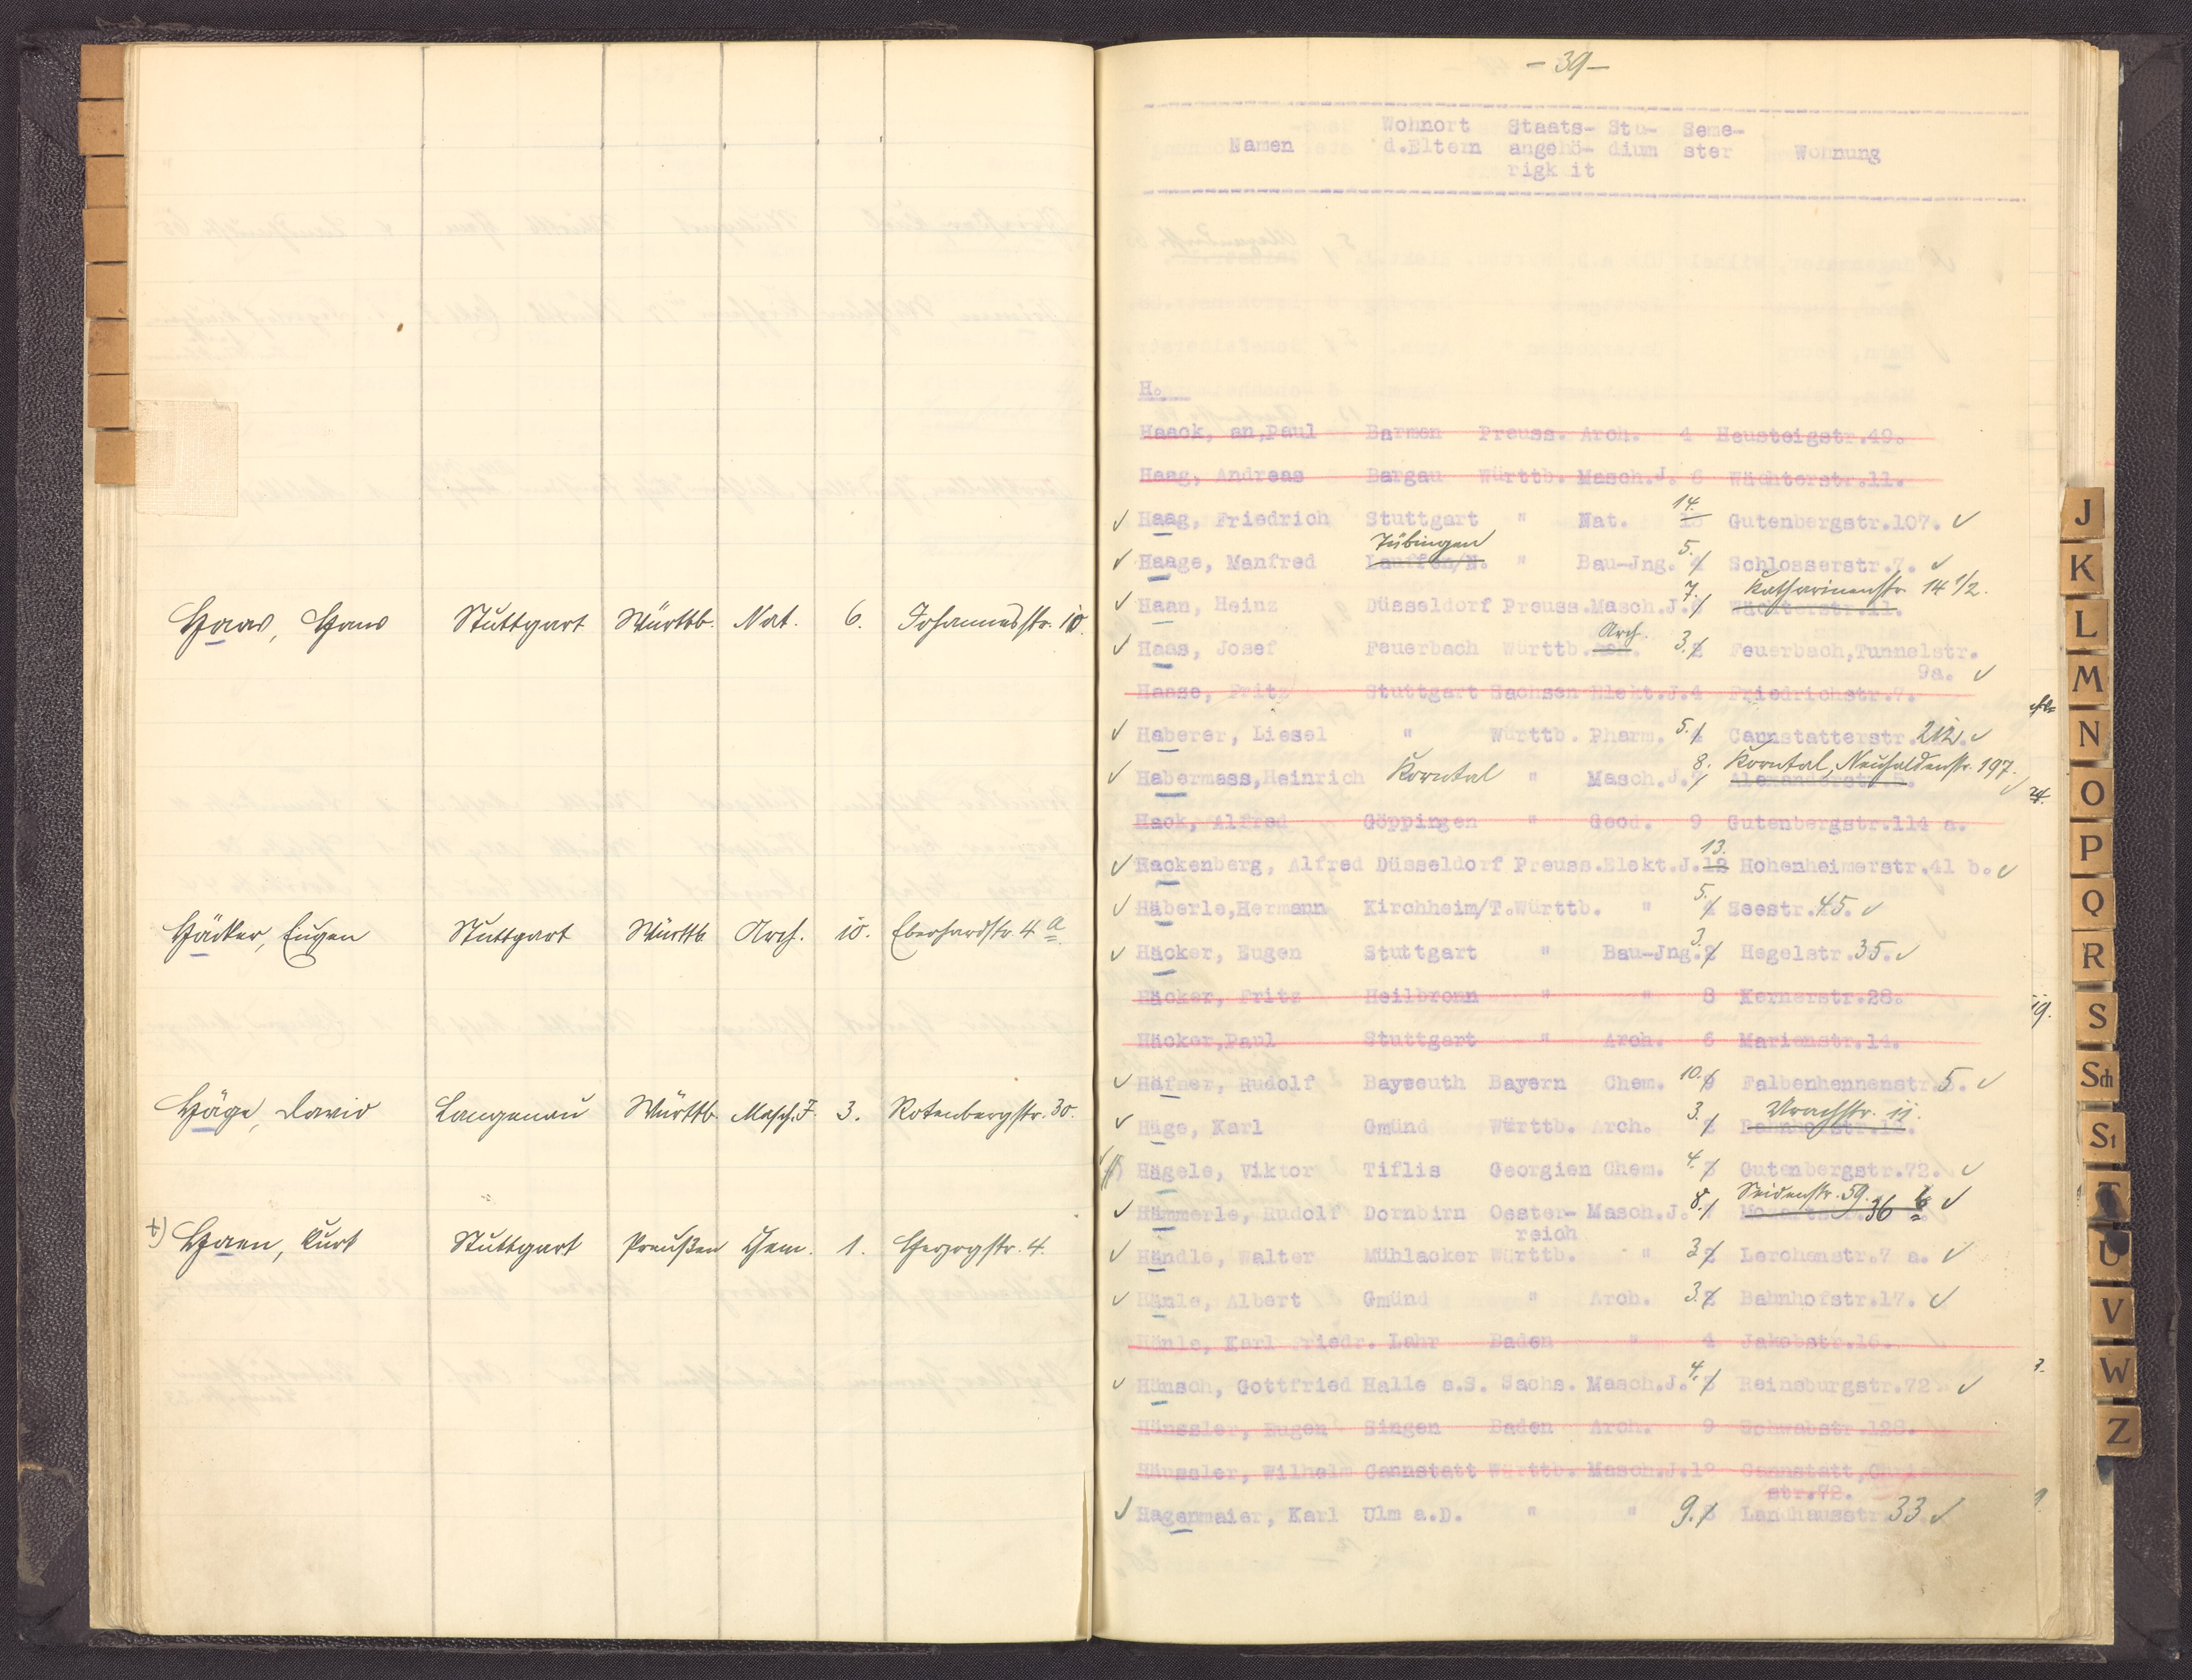 Haas, Hans Stuttgart Württb. Nat. 6. Johannesstr. 10.
Häcker, Eugen Stuttgart Württb Arch. 10. Eberhardstr. 4 a
Häge, David Langenau Württb Masch.J. 3. Rotenbergstr. 30.
t) Haen, Kurt Stuttgart Preußen Chem. 1. Herzogstr. 4.
- 39 -
Namen Wohnort d.Eltern Staats-angehö-rigk it Stu-dium Seme-ster Wohnung
H.
Haack, an,Paul Barmen Preuss. Arch. 4 Heusteigstr.49.
Haag, Andreas Bargau Württb. Masch.J. 6 Wächterstr.11.
14.
Haag, Friedrich Stuttgart " Nat. 13 Gutenbergstr.107.
Tübingen 5.
Haage, Manfred Lauffen/N. " Bau-Jng. 4 Schlosserstr.7.
7. Katharinenstr. 14 1/2.
Haan, Heinz Düsseldorf Preuss.Masch.J.6 Wächterstr.11.
Arch.
Haas, Josef Feuerbach Württb. 3. 2 Feuerbach,Tunnelstr.
9a.
Haase, Fritz Stuttgart Sachsen Elekt.J.4 Friedrichstr.7.
Haberer, Liesel " Württb. Pharm. 5. 4 Cannstatterstr.212.
8. Korntal, Neuhaldenstr. 197.
Habermass,Heinrich Korntal " Masch.J.7 Alexanderstr.5.
Hack, Alfred Göppingen " Geod. 9 Gutenbergstr.114 a.
13.
Hackenberg, Alfred Düsseldorf Preuss.Elekt.J.12 Hohenheimerstr.41 b.
5.
Häberle,Hermann Kirchheim/T.Württb. " 4 Seestr.45.
3.
Häcker, Eugen Stuttgart " Bau-Jng.2 Hegelstr.35.
Häcker, Fritz Heilbronn " " 8 Kernerstr.28.
Häcker,Paul Stuttgart " Arch. 6 Marienstr.14.
Häfner, Rudolf Bayreuth Bayern Chem. 10. 9 Falbenhennenstr.5.
3. Urachstr. 11.
Häge, Karl Gmünd Württb. Arch. 2 Bahnhofstr.12.
4.
Hägele, Viktor Tiflis Georgien Chem. 3 Gutenbergstr.72.
8. Seidenstr. 59.
Hämmerle, Rudolf Dornbirn Oester- Masch.J.7 Mozartstr.36 b
reich
Händle, Walter Mühlacker Württb. " 3. 2 Lerchenstr.7 a.
Hänle, Albert Gmünd " Arch. 3. 2 Bahnhofstr.17.
Hänle, Karl Friedr. Lahr Baden " 4 Jakobstr.16.
4.
Hänsch, Gottfried Halle a.S. Sachs. Masch.J. 3 Reinsburgstr.72.
Hänssler, Eugen Singen Baden Arch. 9 Schwabstr.128.
Häussler, Wilhelm Cannstatt Württb. Masch.J. Cannstatt,
str.72.
Hagenmaier, Karl Ulm a.D. " " 9. 8 Landhausstr 33
J
K
L
M
N
O
P
Q
R
S
Sch
St
T
U
V
W
Z